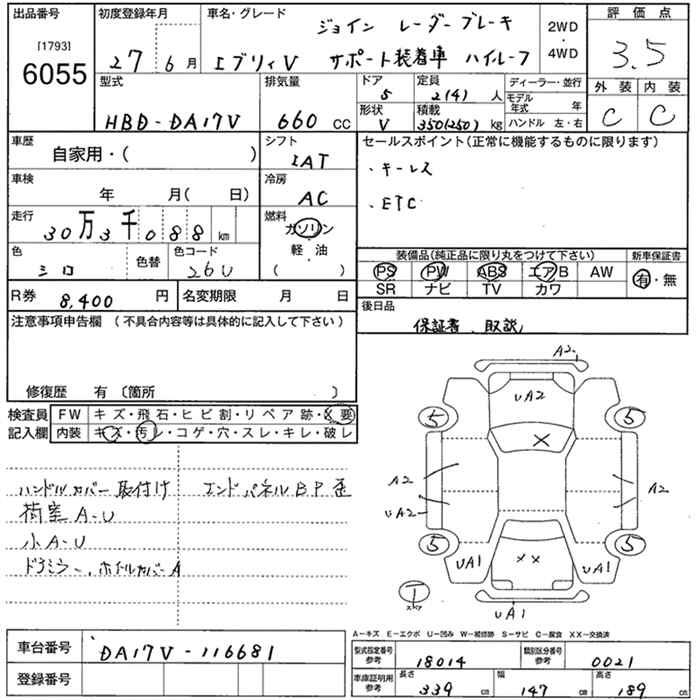 出品番号 初度登録年月 車名・グレード ジョイン レーダーブレーキ 2WD 評価点
[1793] 27 6月 エブリイV サポート装着車 ハイルーフ ・ 4WD 3.5
6055 型式 排気量 ドア 5 定員 2(4)人 ディーラー・並行 外装 内装
HBD-DA17V 660 CC 形状 V 積載 350(250)kg モデル年式 年 C C
ハンドル 左・右
車歴 自家用・( ) シフト IAT セールスポイント(正常に機能するものに限ります)
車検 年 月( 日) 冷房 AC ・キーレス
走行 30万3千088km 燃料 ガソリン ・ETC
軽・油
( )
色 シロ 色替 色コード 26U 装備品(純正品に限り丸をつけて下さい) 新車保証書
PS PW ABS エアB AW 有・無
SR ナビ TV カワ
R券 8,400 円 名変期限 月 日 後日品
保証書、取説
注意事項申告欄 (不具合内容等は具体的に記入して下さい)
修復歴 有 〔箇所 〕
検査員 FW キズ・飛石・ヒビ割・リペア跡・X要
記入欄 内装 キズ・汚レ・コゲ・穴・スレ・キレ・破レ
ハンドルカバー取付け エンドパネルBP歪
荷室A-U
小A-U
ドアミラー、ホイルカバーA
A2
UA2
5 5
X
A2 A2
UA2
5 5
UA1 XX UA1
T
スペア
UA1
A-キズ E-エクボ U-凹み W-補修跡 S-サビ C-腐食 XX-交換済
車台番号 DA17V-116681 型式指定番号 参考 18014 類別区分番号 参考 0021
登録番号 車庫証明用 参考 長さ 339 cm 幅 147 cm 高さ 189 cm